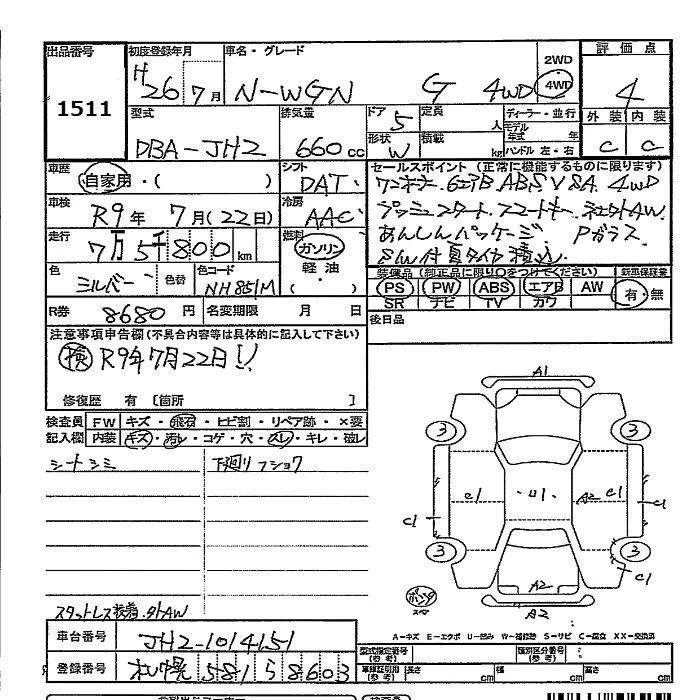 出品番号 初度登録年月 車名・グレード 2WD 評価点
1511 H26 7月 N-WGN G 4WD 4WD 4
型式 排気量 ドア 定員 ディーラー・並行 外装 内装
DBA-JH2 660cc 5 人 モデル年式 年 C C
形状 積載 W kg ハンドル 左・右
車歴 シフト セールスポイント (正常に機能するものに限ります)
自家用・( ) DAT ワンオーナー 6エアB ABS VSA 4WD
車検 冷房 プッシュスタート スマートキー 社外AW
R9年 7月(22日) AAC あんしんパッケージ Pガラス
走行 燃料 8分付夏タイヤ積込
7万5千800km ガソリン
軽油
・( )
色 色替 色コード 装備品 (純正品に限り○をつけてください) 新車保証書
シルバー NH851M PS PW ABS エアB AW 有・無
SR ナビ TV カワ
R券 8680円 名変期限 月 日 後日品
注意事項申告欄(不具合内容等は具体的に記入して下さい)
検 R9年7月22日!!
修復歴 有 [箇所 ]
検査員 FW キズ・飛石・ヒビ割・リペア跡・×要
記入欄 内装 キズ・汚レ・コゲ・穴・スレ・キレ・破レ
シートシミ 下廻りフショク
A1
3 3
C1 U1 A2 C1 C1
C1
3 3
C1
A2
A2
パンク スペア
スタットレス装着・外AW
A-キズ E-エクボ U-凹み W-補修跡 S-サビ C-腐食 XX-交換済
車台番号 JH2-1014151 型式指定番号(参考) 類別区分番号(参考)
登録番号 札幌 581 ら 8603 車検証引用(参考) 長さ cm 幅 cm 高さ cm